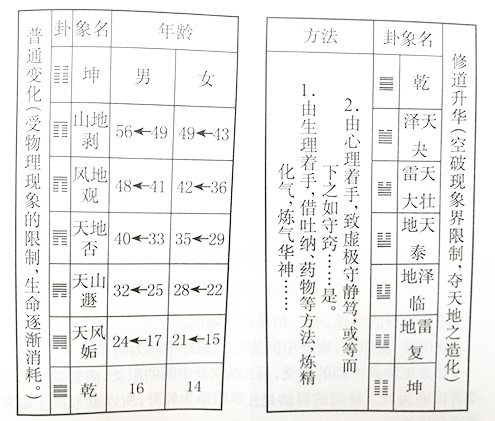 普通变化(受物理现象的限制,生命逐渐消耗。)
卦象名 年龄
坤 男 女
山地
剥 56←49 49←43
风地
观 48←41 42←36
天地
否 40←33 35←29
天山
遯 32←25 28←22
天风
姤 24←17 21←15
乾 16 14
方法 卦象名
1.由生理着手,借吐纳、药物等方法,炼精
化气,炼气华神……
2.由心理着手,致虚极守静笃,或等而
下之如守窍……是。
乾
泽天
夬
雷天
大壮
地天
泰
地泽
临
地雷
复
坤
修道升华(空破现象界限制,夺天地之造化)